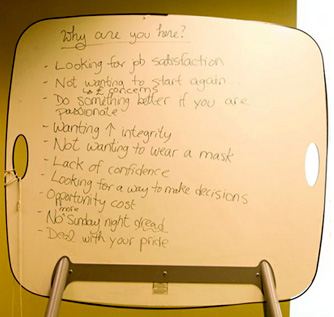 Why are you here?
- Looking for job satisfaction
- Not wanting to start again
↳ £ concerns
- Do something better if you are
passionate
- Wanting ↑ integrity
- Not wanting to wear a mask
- Lack of confidence
- Looking for a way to make decisions
- Opportunity cost
- No more Sunday night dread
- Deal with your pride